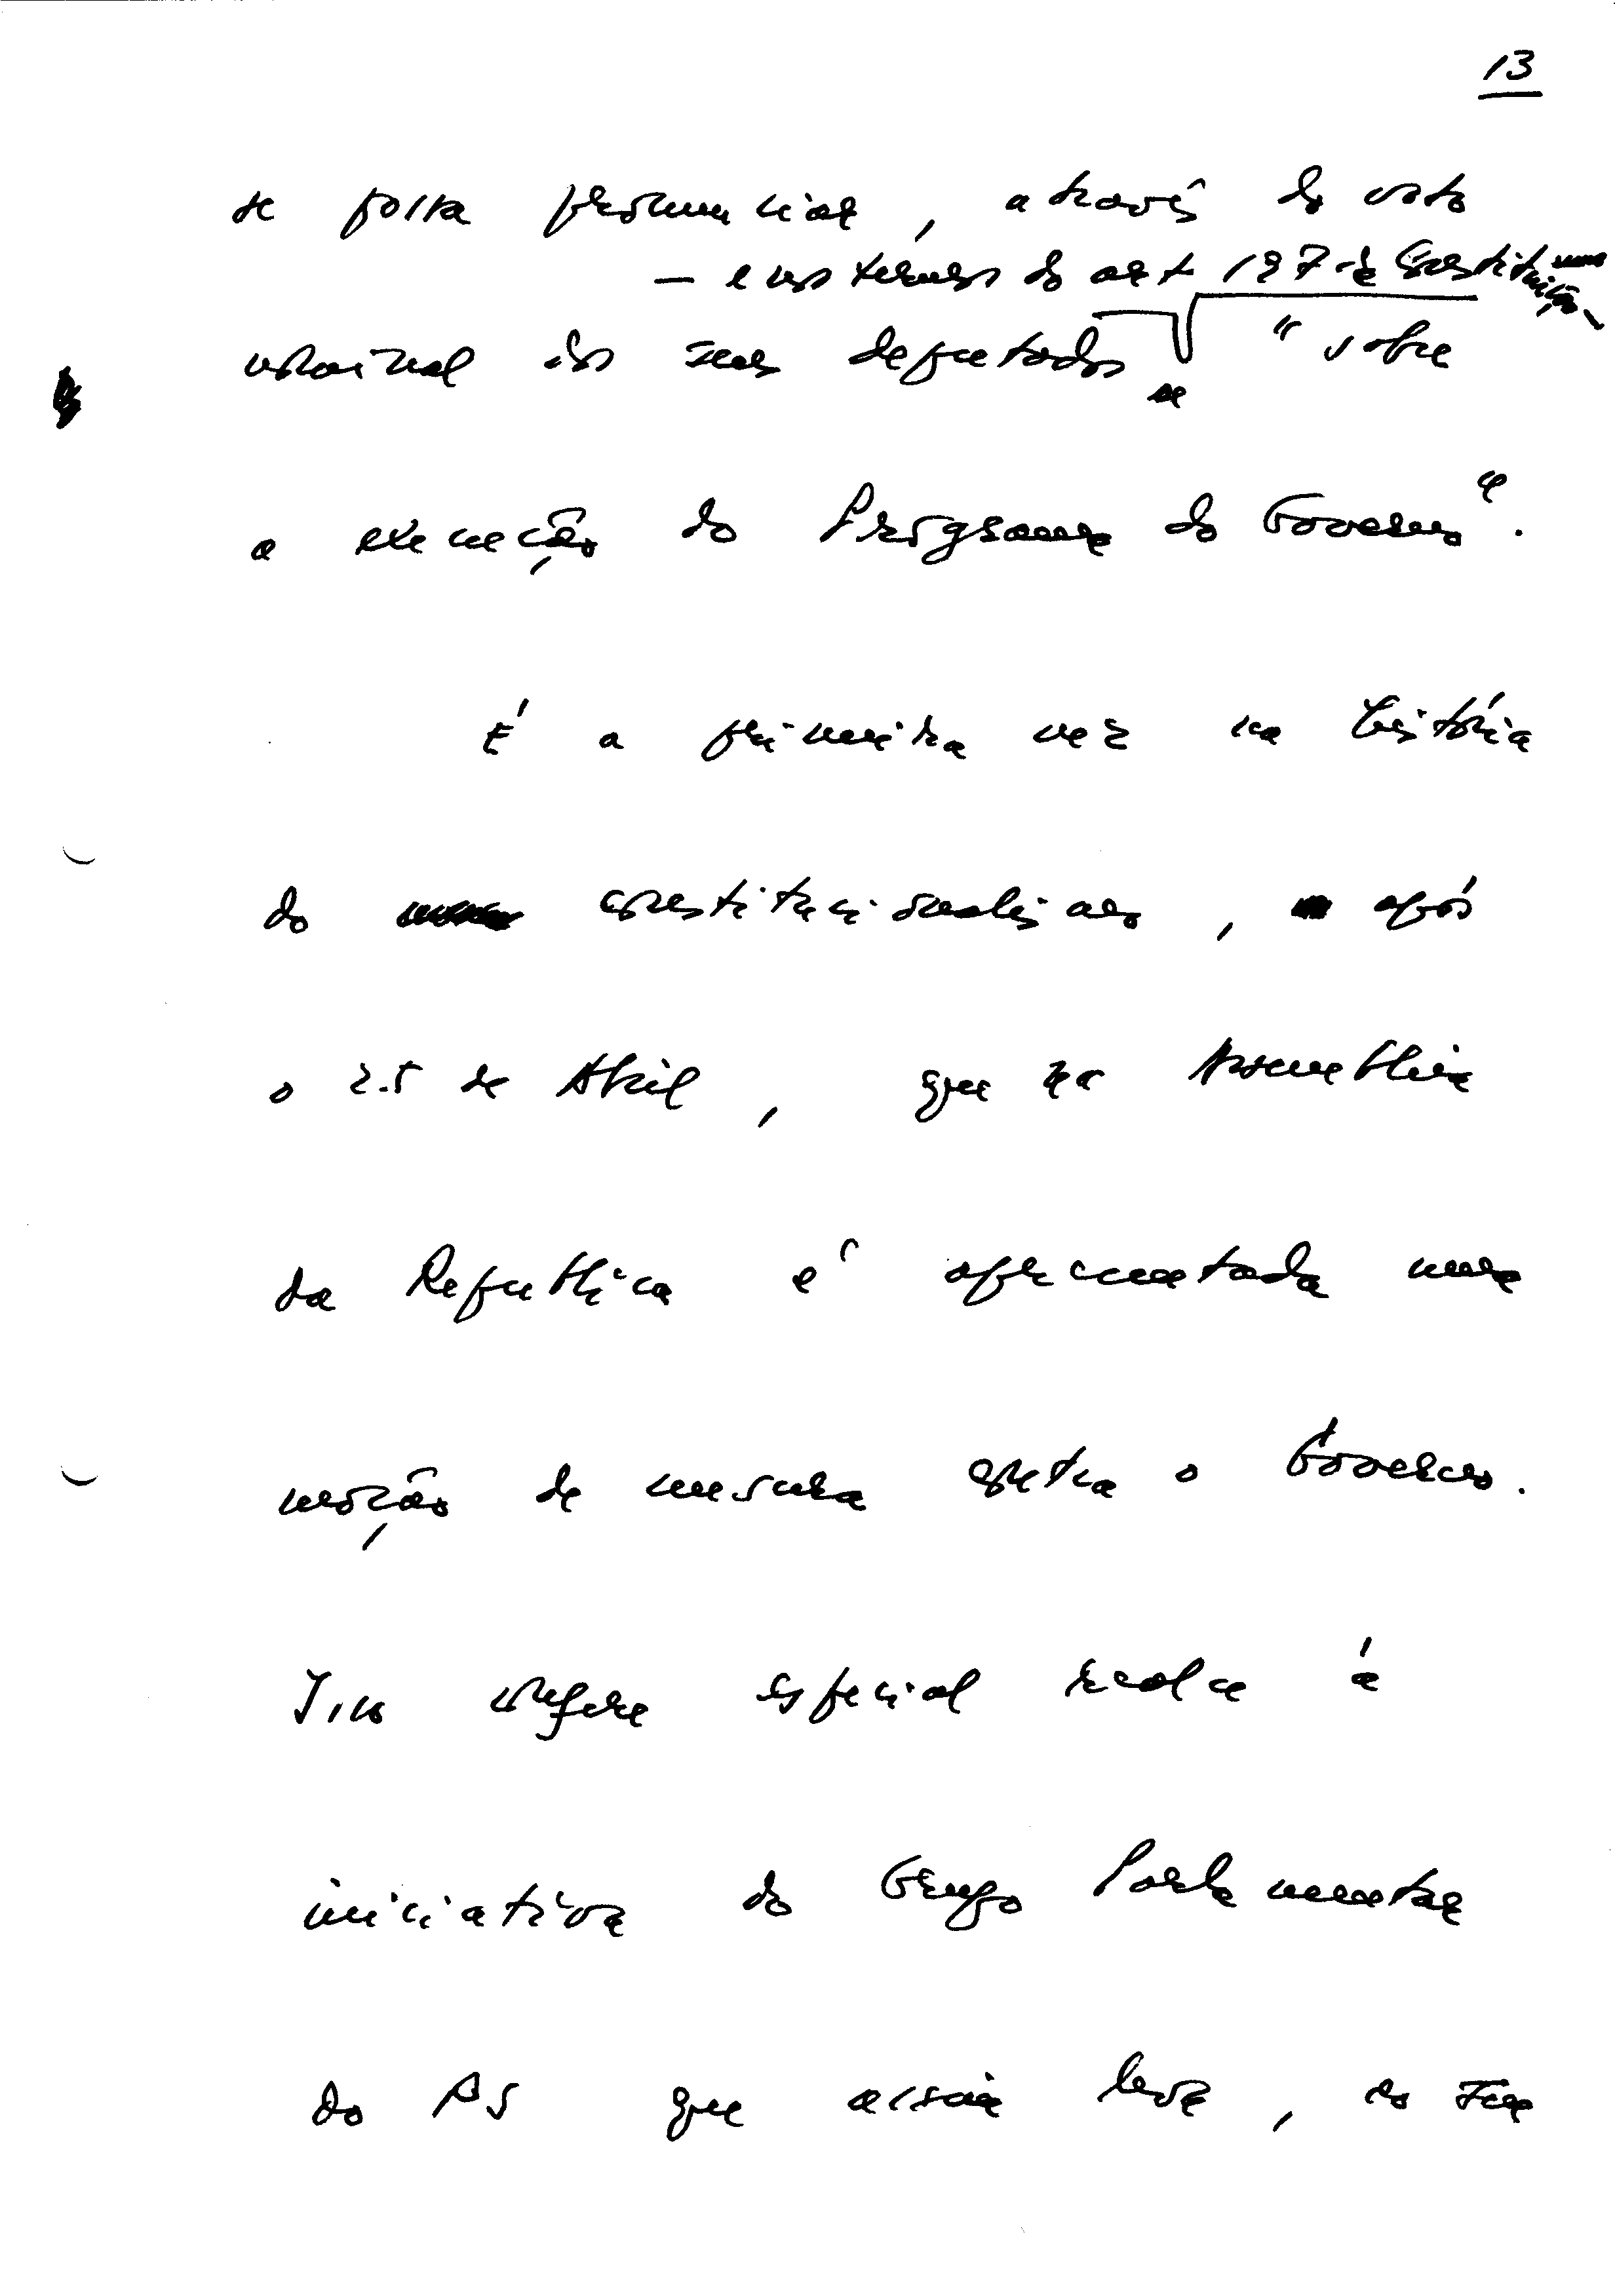 13
se possa pronunciar, através do voto
— e nos termos do art 197 da Constituição —
nominal dos seus deputados "sobre
a execução do Programa do Governo".
É a primeira vez na história
do constitucionalismo, após
o 25 de Abril, que na Assembleia
da República é apresentada uma
moção de censura contra o Governo.
Isso confere especial realce à
iniciativa do Grupo Parlamentar
do PS que assim leva, ao